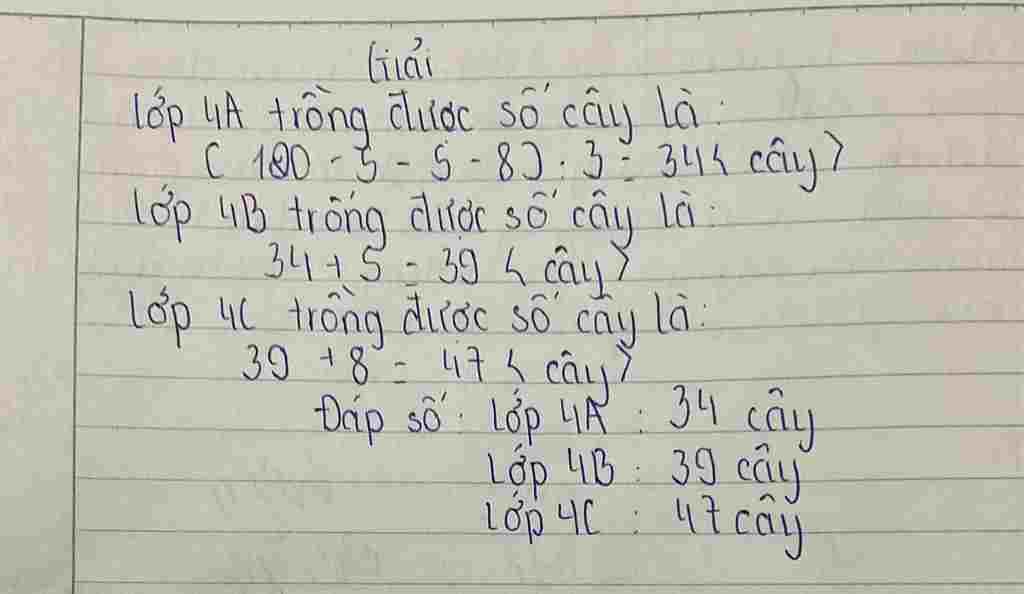 Giải
Lớp 4A trồng được số cây là:
( 120 - 5 - 5 - 8) : 3 = 34 < cây >
Lớp 4B trống được số cây là:
34 + 5 = 39 < cây >
Lớp 4C trồng được số cây là:
39 + 8 = 47 < cây >
Đáp số: Lớp 4A : 34 cây
Lớp 4B : 39 cây
Lớp 4C : 47 cây